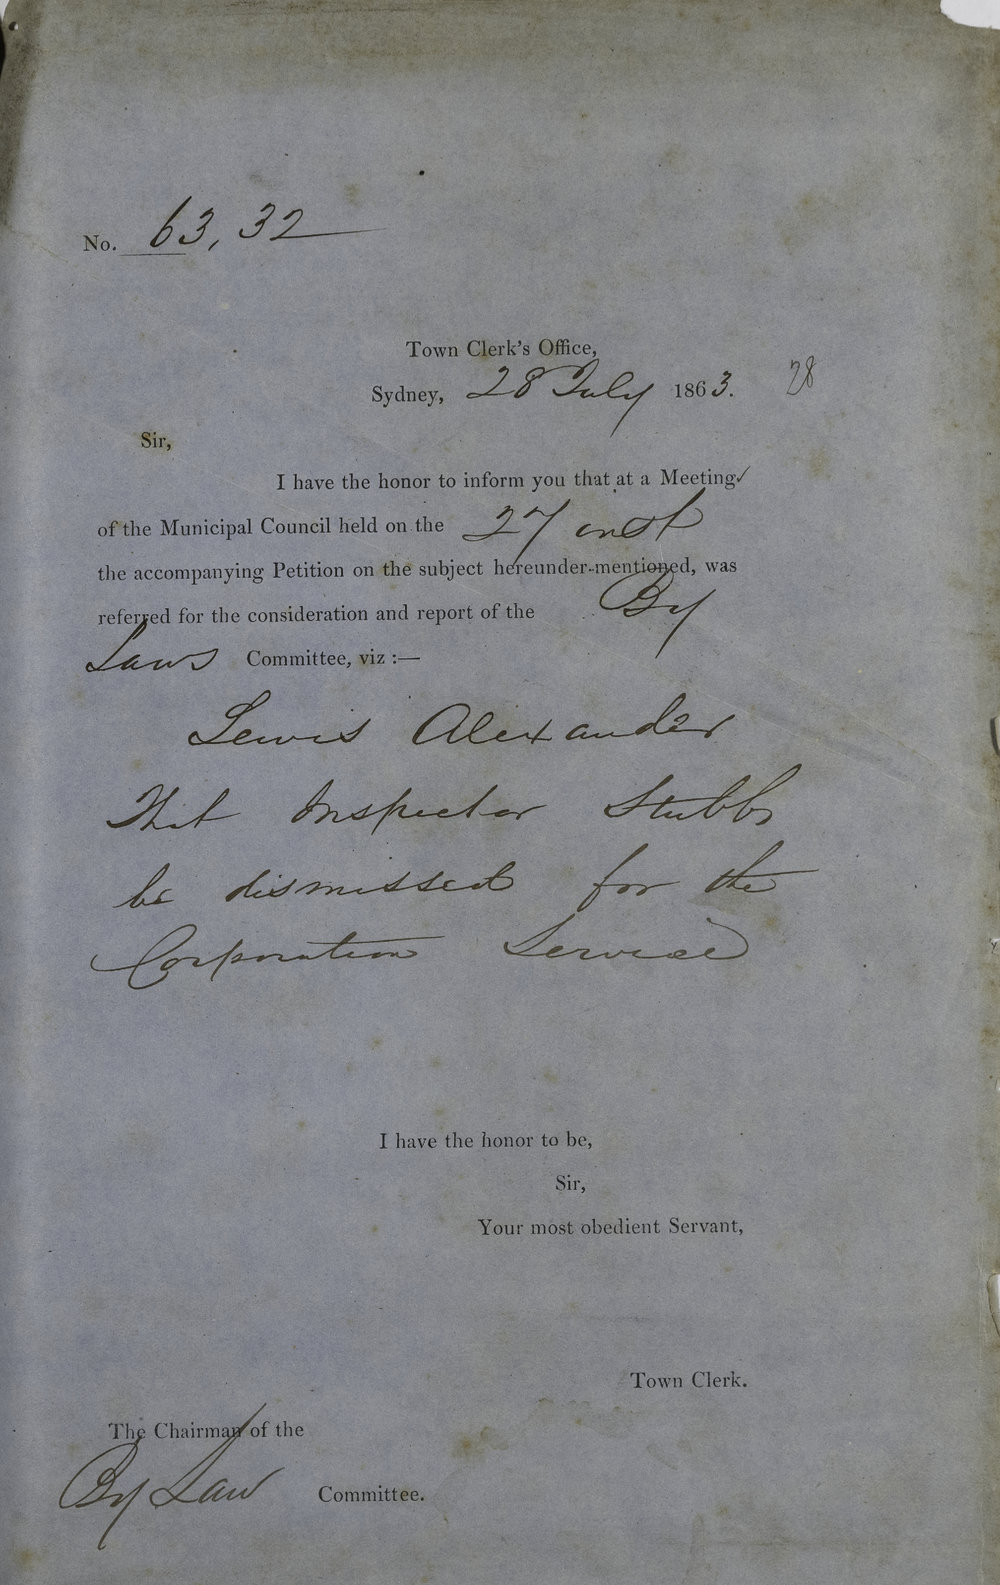 No. 63,32
Town Clerk's Office,
Sydney, 28 July 1863. 28
Sir,
I have the honor to inform you that at a Meeting
of the Municipal Council held on the 27 inst
the accompanying Petition on the subject hereunder-mentioned, was
referred for the consideration and report of the By
Laws Committee, viz :—
Lewis Alexander
That Inspector Stubbs
be dismissed for the
Corporation Service
I have the honor to be,
Sir,
Your most obedient Servant,
Town Clerk.
The Chairman of the
By Law Committee.